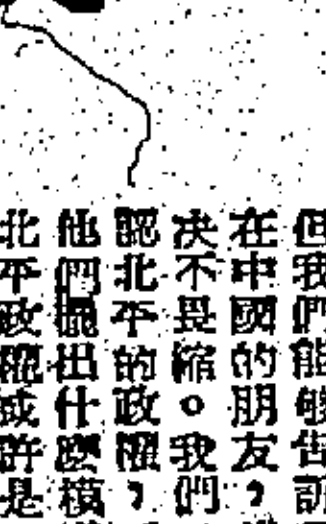 但我們能夠告訴
在中國的朋友，
决不畏縮。我們
認北平的政權，
他們擺出什麽模
北平政權或許是